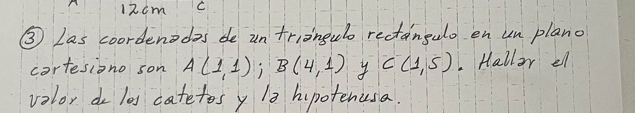 12cm C
③ Las coordenadas de un triángulo rectángulo en un plano
cartesiano son A(1,1); B(4,1) y C(1,5). Hallar el
valor de los catetos y la hipotenusa.